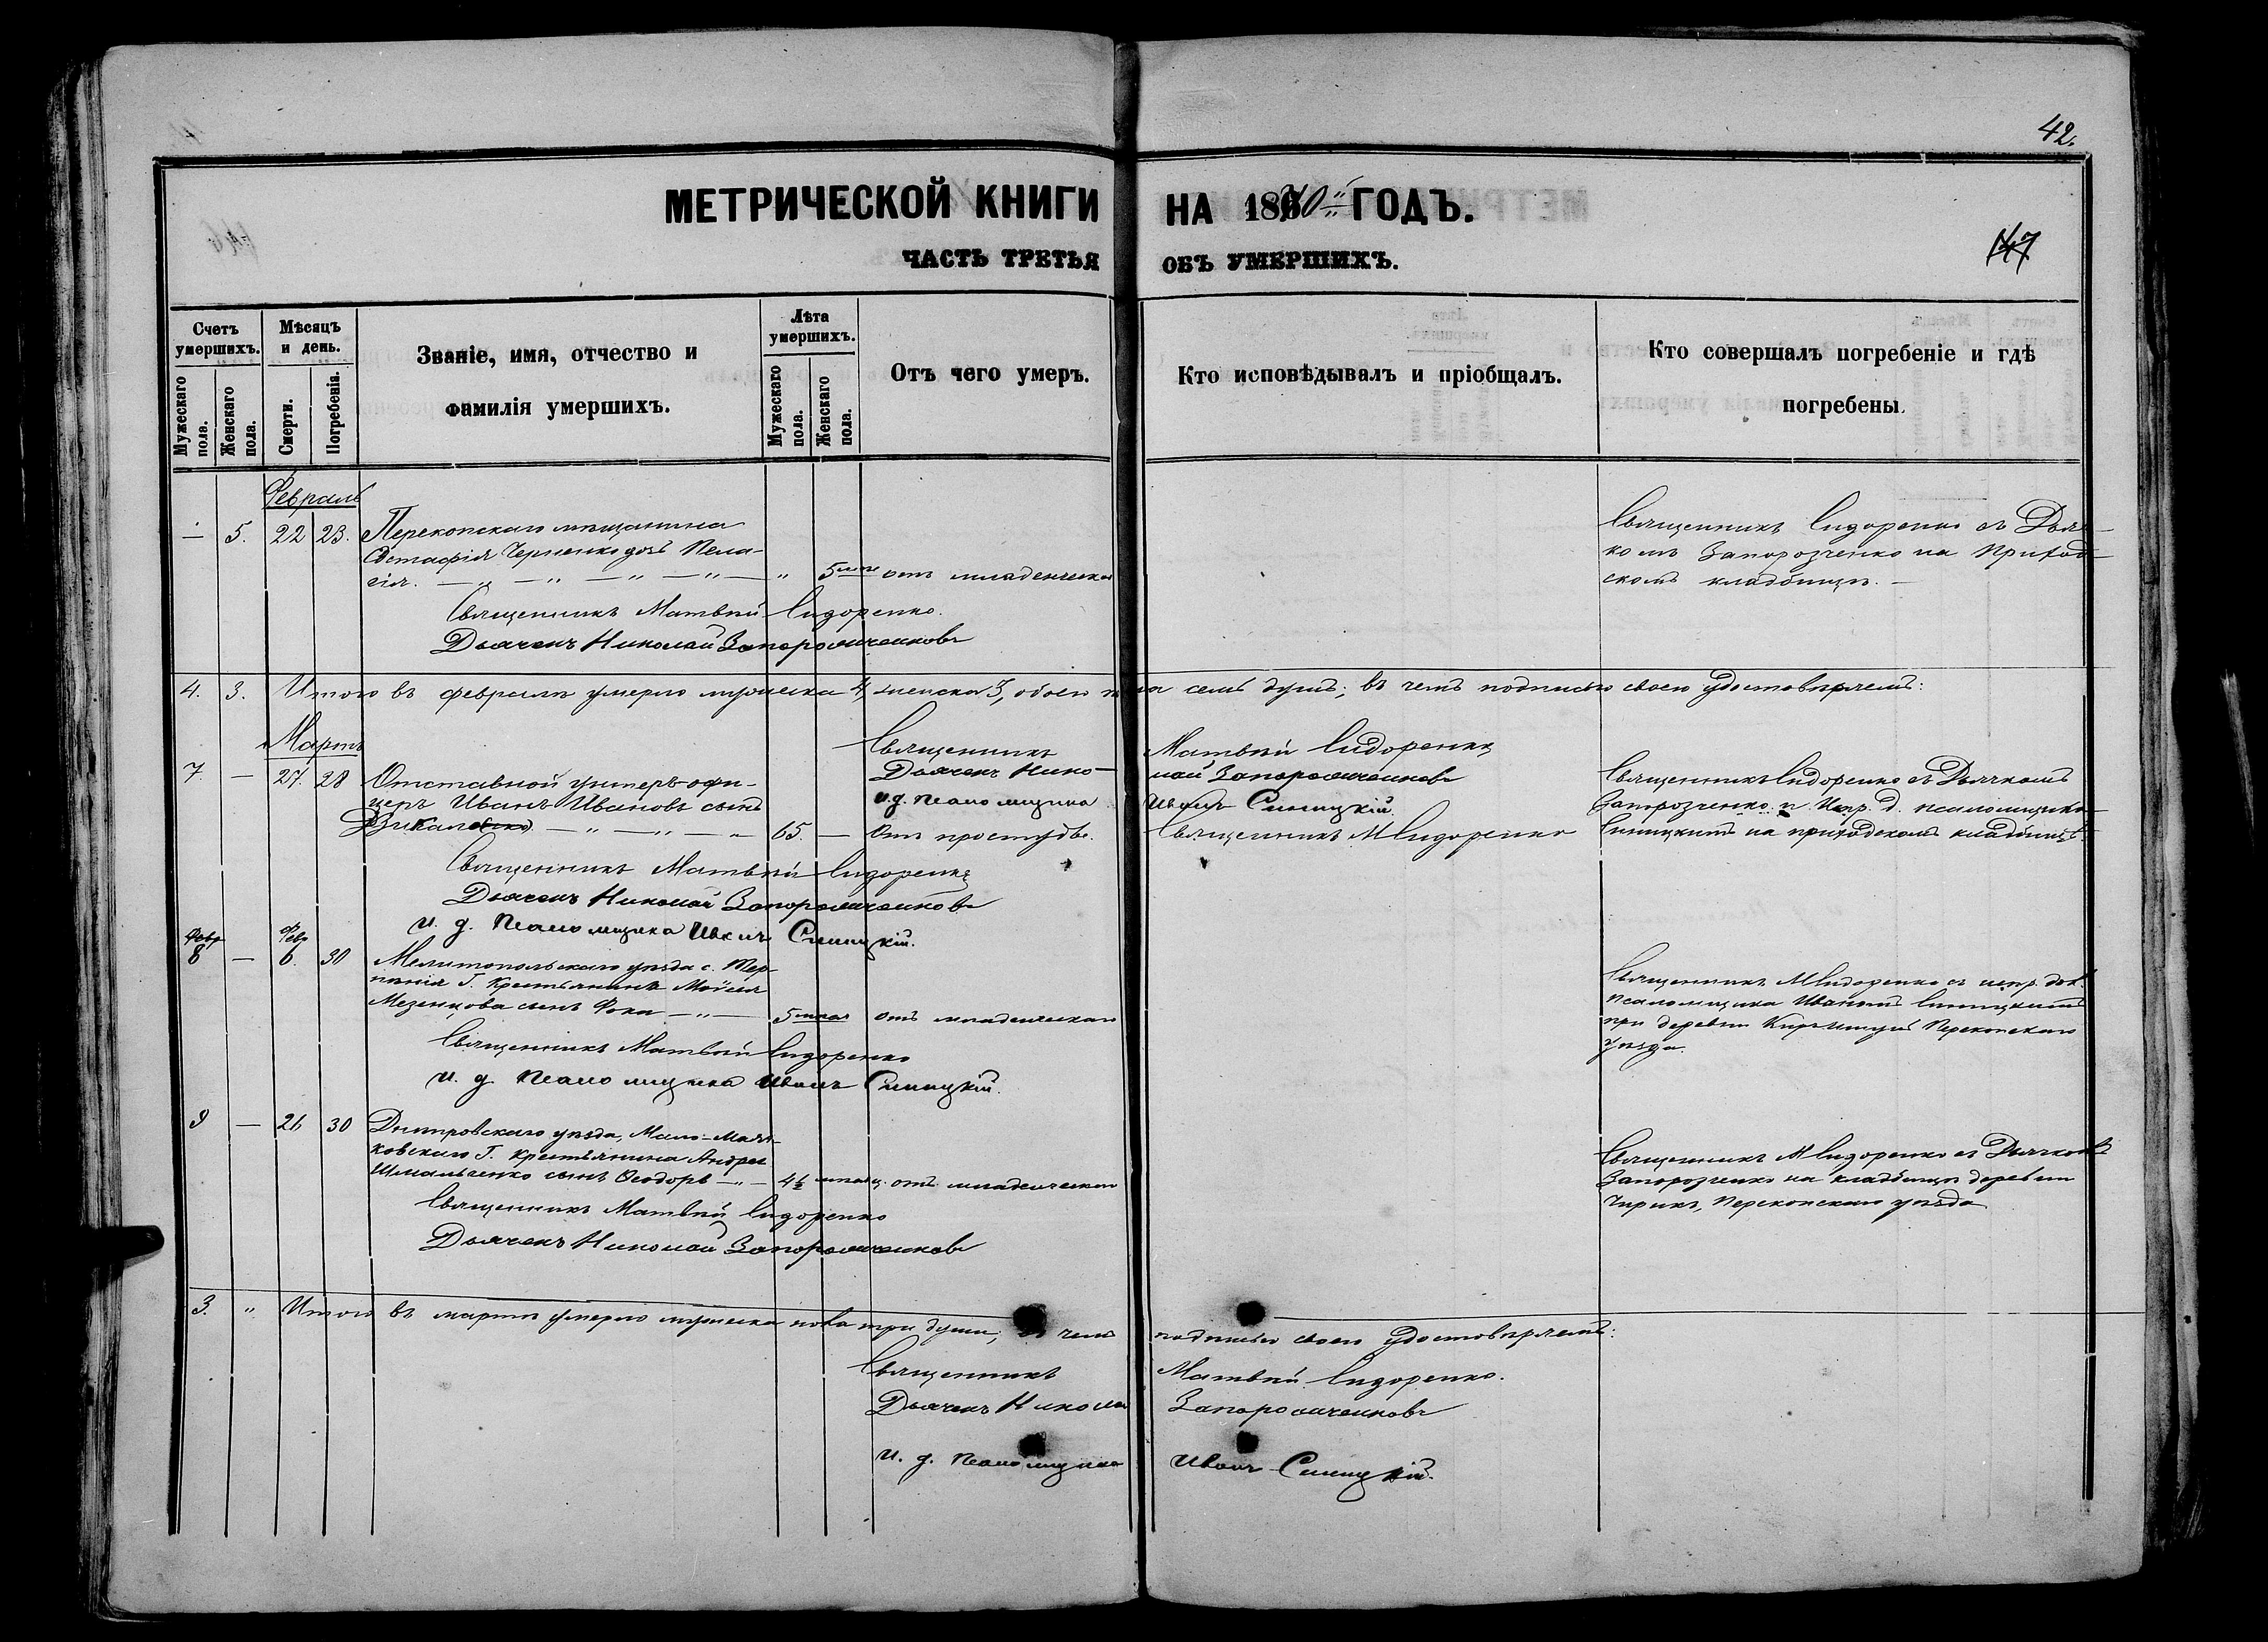 42.
МЕТРИЧЕСКОЙ КНИГИ НА 1870й ГОДЪ.
ЧАСТЬ ТРЕТЬЯ ОБЪ УМЕРШИХЪ.
147
Счетъ умершихъ.
Мужескаго пола.
Женскаго пола.
Мѣсяцъ и день.
Смерти.
Погребенія.
Званіе, имя, отчество и
фамилія умершихъ.
Лѣта умершихъ.
Мужескаго пола.
Женскаго пола.
Отъ чего умеръ.
Кто исповѣдывалъ и пріобщалъ.
Кто совершалъ погребеніе и гдѣ
погребены.
Февраль
— 5. 22 23. Перекопскаго мѣщанина
Естафія Черненко дочь Пела-
гія. — „ — „ — „ — „ — „ 5 отъ младенческа
Священникъ Сидоренко съ Дьяч-
комъ Запорозченко на приход-
скомъ кладбищѣ. —
Священникъ Матвѣй Сидоренко.
Дьячекъ Николай Запорожченковъ
4. 3. Итого въ февралѣ умерло мужеска 4, женска 3, обоего пола семь душъ; въ чемъ подписью своею удостовѣряемъ:
Священникъ Матвѣй Сидоренко
Дьячекъ Николай Запорожченковъ
и. д. псаломщика Иванъ Синицкій.
Мартъ
7. — 27. 28 Отставной унтеръ-офи-
церъ Иванъ Ивановъ сынъ
— „ — „ — „ 65. — Отъ простуды. Священникъ М Сидоренко
Священникъ Сидоренко съ Дьячкомъ
Запорозченко и Испр. д. псаломщика
Синицкимъ на приходскомъ кладбищѣ.
Священникъ Матвѣй Сидоренко
Дьячекъ Николай Запорожченковъ
и. д. псаломщика Иванъ Синицкій.
Февр Февр
8 — 6. 30 Мелитопольскаго уѣзда с. Тер-
пѣнія Г. Крестьянина Моѵсея
Мезенцова сынъ Фока — „ — 5 отъ младенческаго
Священникъ М Сидоренко съ испр. дол.
псаломщика Иваномъ Синицкимъ
при деревни Перекопскаго
уѣзда.
Священникъ Матвѣй Сидоренко
и. д. псаломщика Иванъ Синицкій.
9 — 26 30 Днѣпровскаго уѣзда, Мало-Маяч-
ковскаго Г. Крестьянина Андрея
Шмальченко сынъ Ѳеодоръ — „ — 4½ мѣсяц. отъ младенческаго
Священникъ М Сидоренко съ Дьячкомъ
Запорозченко на кладбищѣ деревни
Чирикъ, Перекопскаго уѣзда
Священникъ Матвѣй Сидоренко
Дьячекъ Николай Запорожченковъ
3. „ Итого въ мартѣ умерло мужеска пола три души, въ чемъ подписью своею удостовѣряемъ:
Священникъ Матвѣй Сидоренко.
Дьячекъ Николай Запорожченковъ
и. д. псаломщика Иванъ Синицкій.